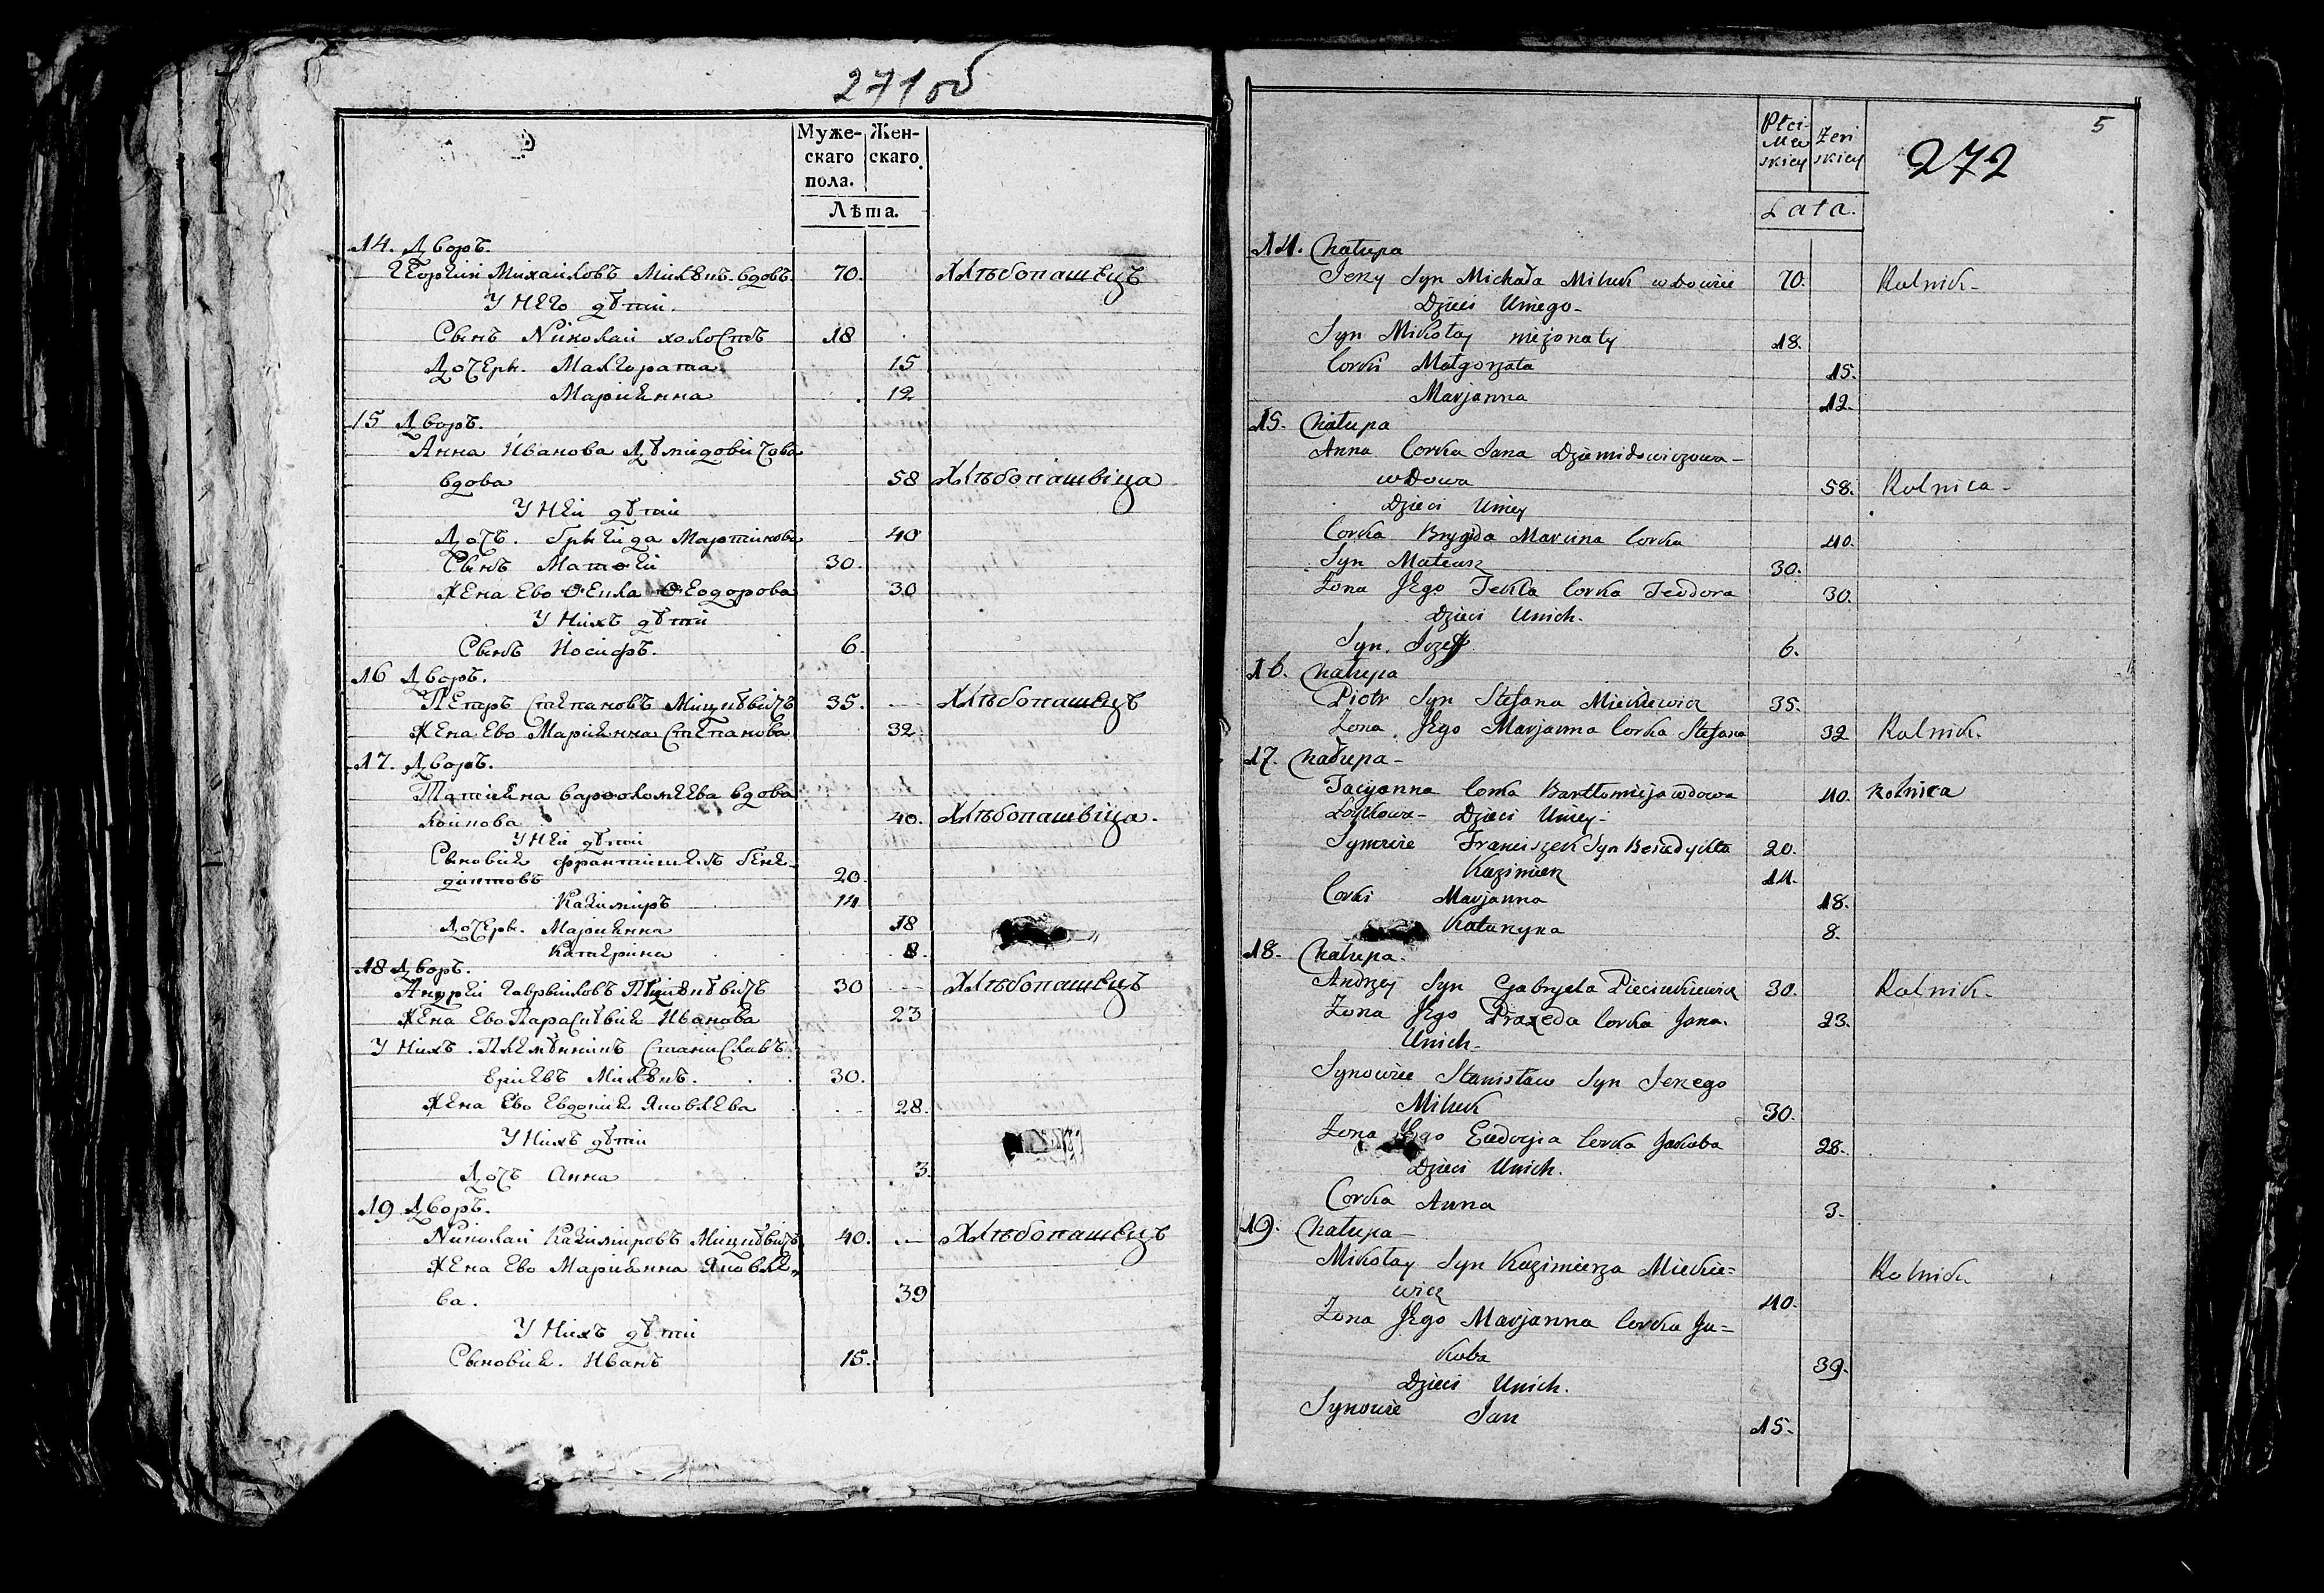 271об
Муже- Жен-
скаго скаго
пола.
Лѣта.
14. Дворъ.
Георгій Михайловъ вдовъ. 70. Хлѣбопашецъ
У него дѣти.
Сынъ Николай холостъ 18
Дочери. Малгората 15
Маріянна 12
15 Дворъ.
Анна Иванова
вдова 58 Хлѣбопашвица
У ней дѣти
Дочь. Бригида Мартинова 40
Сынъ Матѳей 30.
Жена Ево Ѳекла Ѳеодорова 30
У нихъ дѣти
Сынъ Иосифъ. 6.
16 Дворъ.
Петръ Степановъ Мицкѣвичъ 35. Хлѣбопашецъ
Жена Ево Маріянна Степанова 32
17. Дворъ.
Татіяна Варѳоломеева вдова
40. Хлѣбопашвица.
У ней дѣти
Сыновия Францишекъ Бене-
диктовъ 20.
Казимиръ 14
Дочери. Маріянна 18
Катерина 8.
18 Дворъ.
Андрей 30 Хлѣбопашецъ
Жена Ево Иванова 23
У нихъ. Племѣнникъ Станиславъ
30.
Жена Ево Евдокия Яковлева 28.
У нихъ дѣти
Дочь Анна 3.
19 Дворъ.
Николай Казимировъ Мицкѣвичъ 40. Хлѣбопашецъ
Жена Ево Маріянна Яковле-
ва. 39
У нихъ дѣти
Сыновия. Иванъ 15.
5
Płci
Mę Żeń
skiey skiey
272
Lata.
14. Chałupa
Jerzy Syn Michała wdowiec 70. Rolnik-
Dzieci Uniego-
Syn Mikołay nieżonaty 18.
Corki Małgorzata 15.
Marjanna 12.
15. Chałupa
Anna Corka Jana Dziemidowiczowa-
wdowa 58. Rolnica-
Dzieci Uniey
Corka Brygida Marcina Corka 40.
Syn Mateusz 30.
Żona Jego Tekla Corka Teodora 30.
Dzieci Unich.
Syn. Jozef 6.
16. Chałupa
Piotr Syn Stefana Mickiewicz 35.
Żona Jego Marjanna Corka Stefana 32 Rolnik.
17. Chałupa-
Tacyanna Corka Bartłomieja wdowa 40. Rolnica
Dzieci Uniey-
Synowie Franciszek Syn Benedykta 20.
Kazimierz 14.
Corki Marjanna 18.
Katarzyna 8.
18. Chałupa.
Andrzey Syn Gabryela Pieciukiewicz 30. Rolnik-
Żona Jego Praxeda Corka Jana. 23.
Unich-
Synowiec Stanisław Syn Jerzego
30.
Żona Jego Eudocyia Corka Jakoba 28.
Dzieci Unich.
Corka Anna 3.
19. Chałupa-
Mikołay Syn Kazimierza Mickie= Rolnik.
wicz 40.
Żona Jego Marjanna Corka Ja=
koba 39.
Dzieci Unich.
Synowie Jan 15.